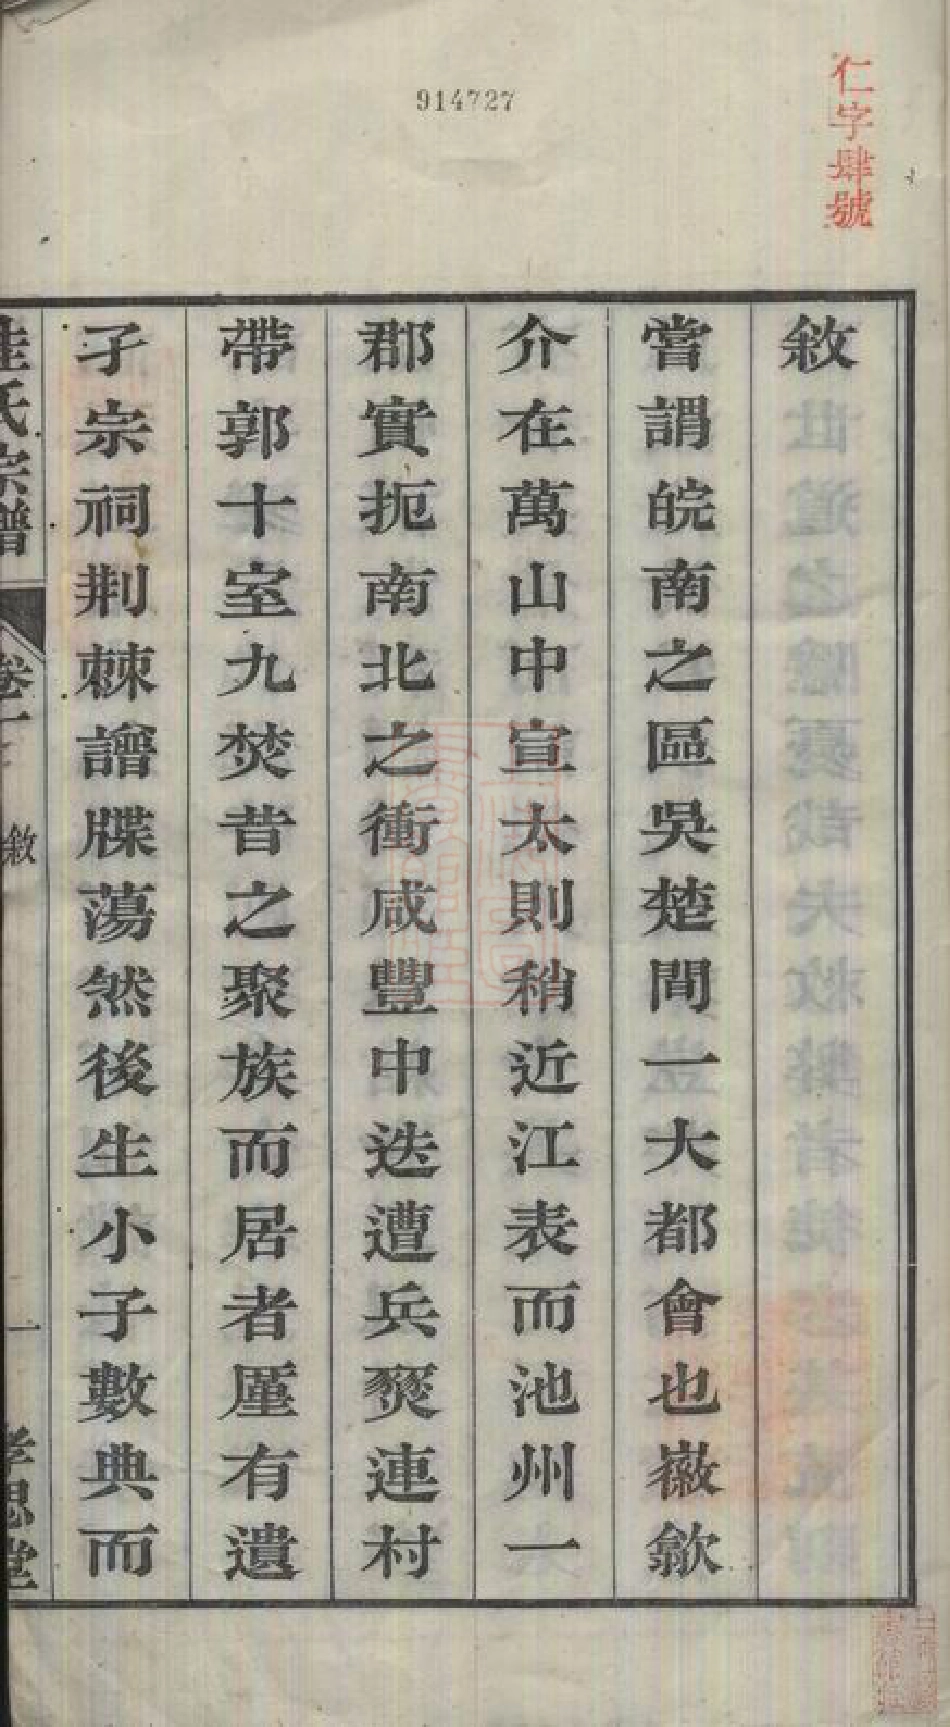 914727
仁字肆號
敘
嘗謂皖南之區吳楚間一大都會也徽歙
介在萬山中宣太則稍近江表而池州一
郡實扼南北之衝咸豐中迭遭兵燹連村
帶郭十室九焚昔之聚族而居者廑有遺
孑宗祠荆棘譜牒蕩然後生小子數典而
桂氏宗譜
卷一
敘
一
孝思堂